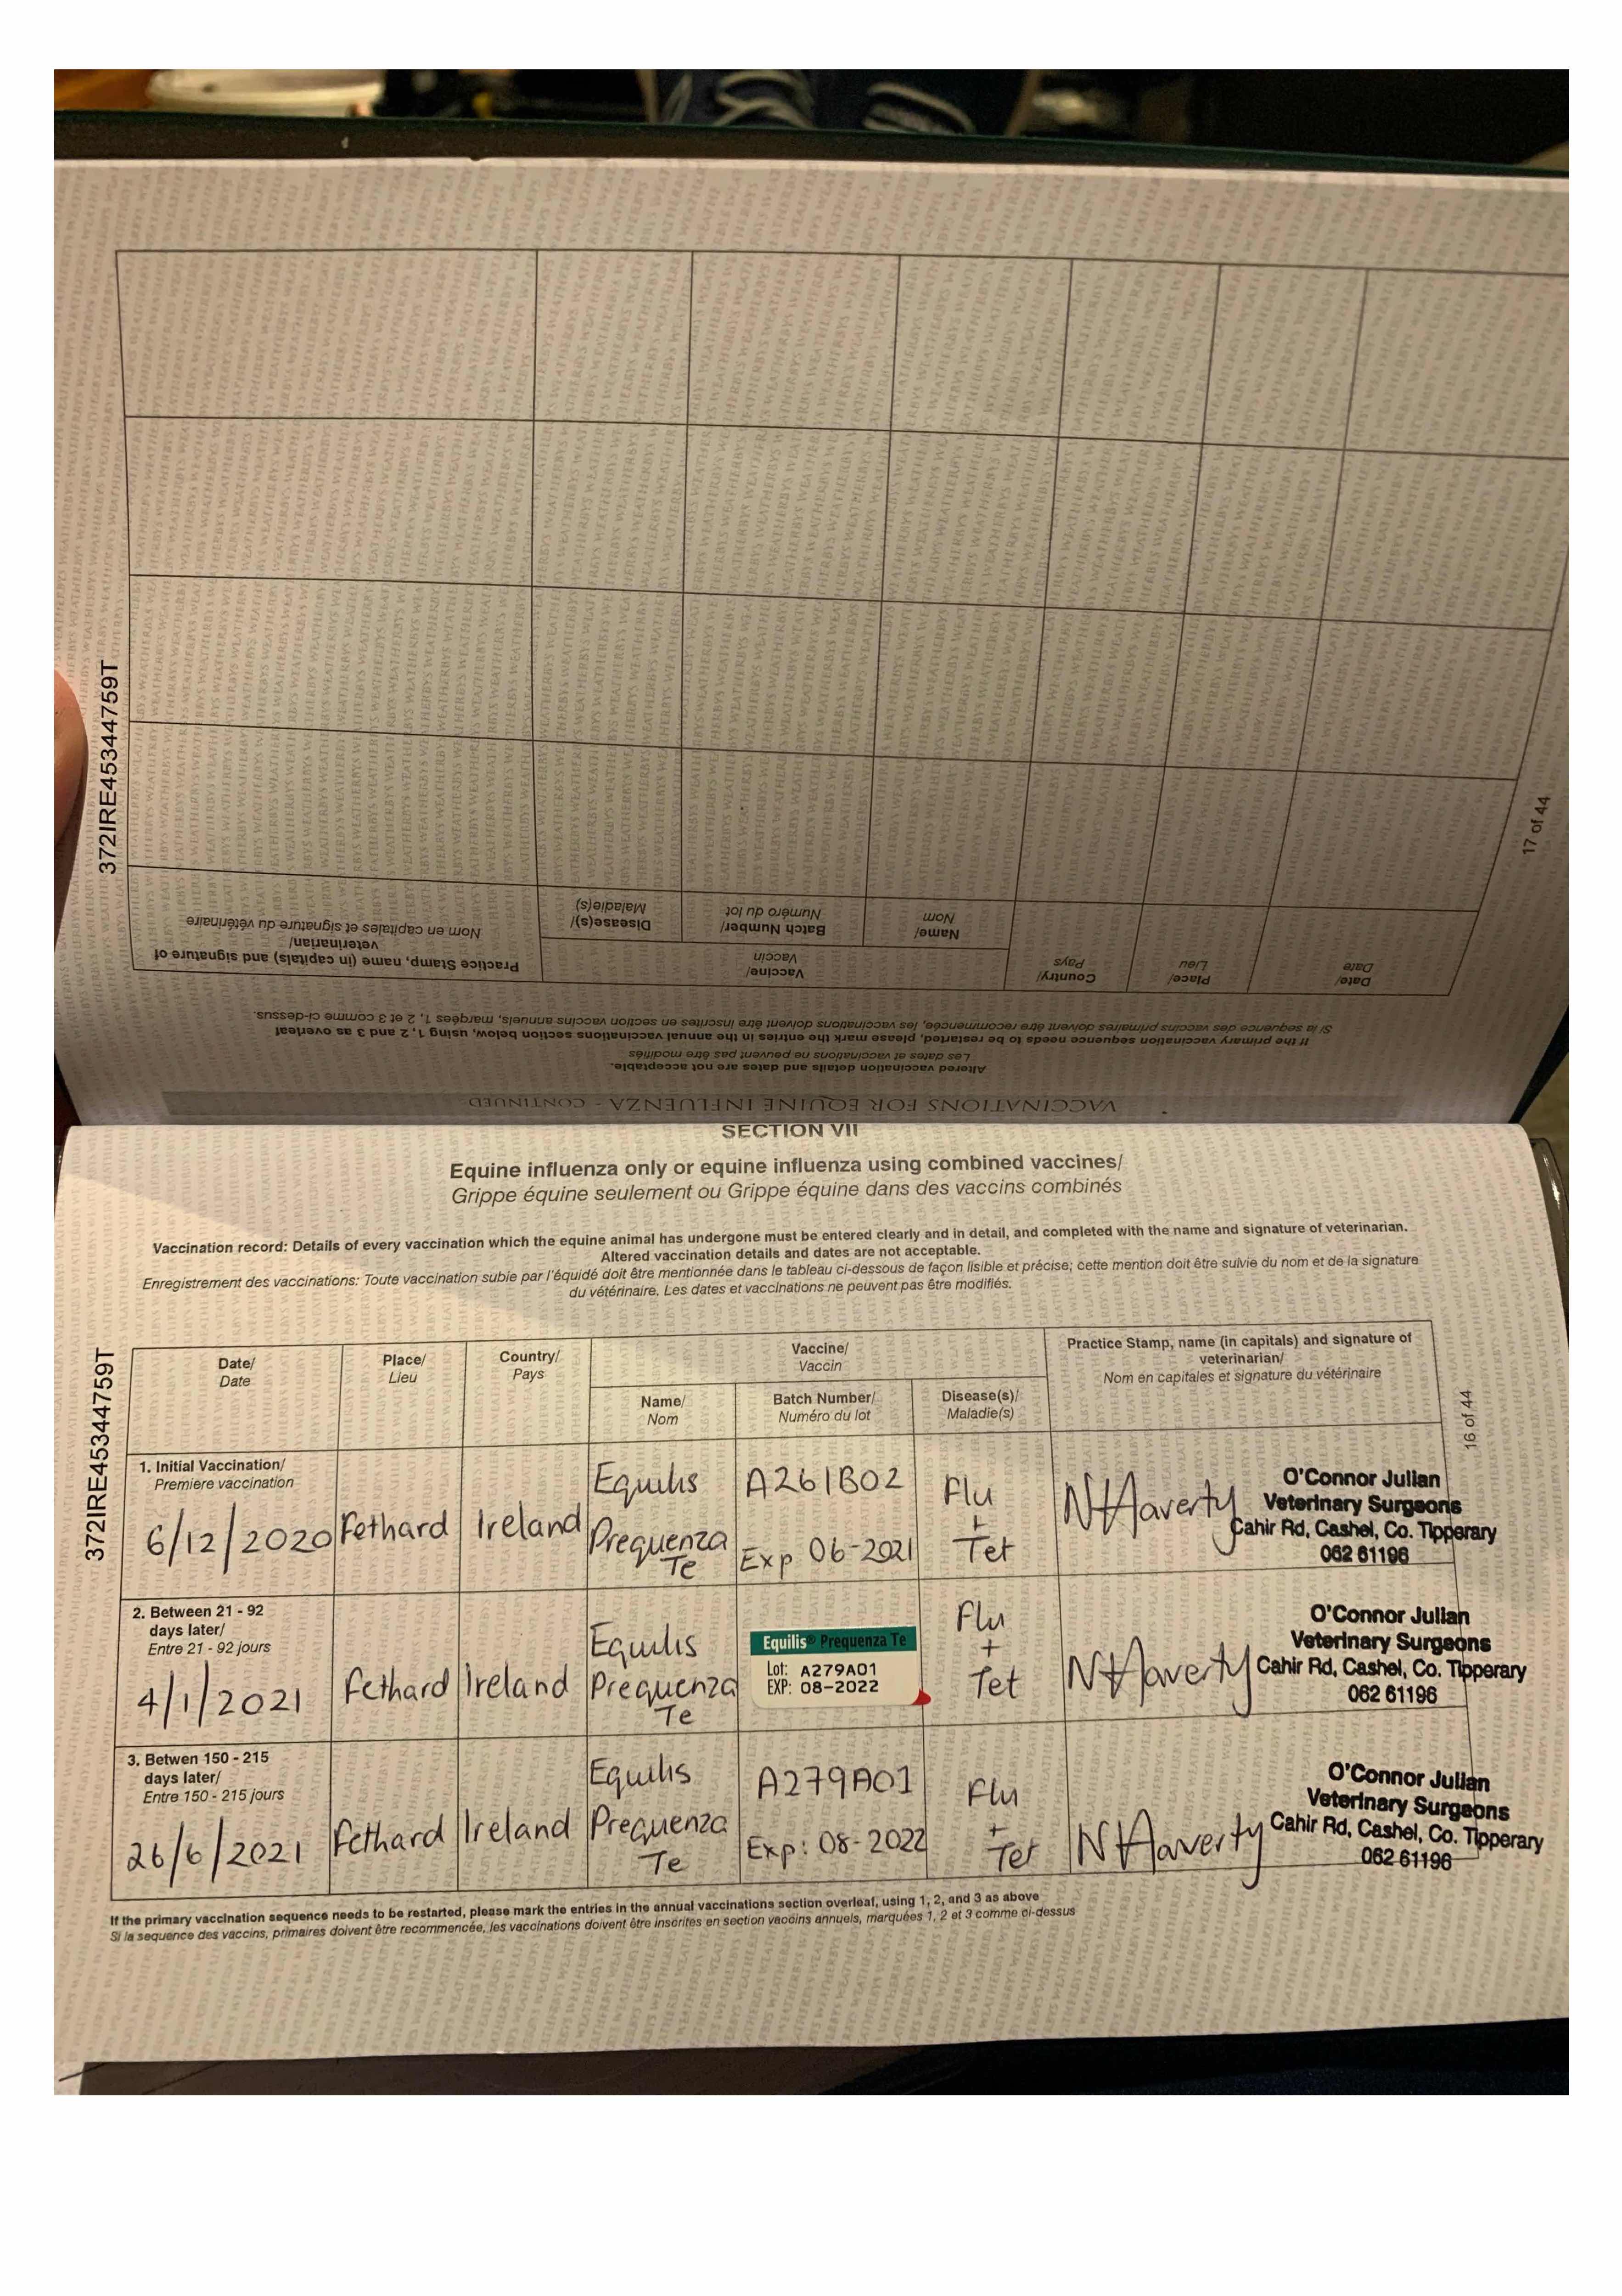 372IRE45344759T
17 of 44
VACCINATIONS FOR EQUINE INFLUENZA - CONTINUED
Altered vaccination details and dates are not acceptable.
Les dates et vaccinations ne peuvent pas être modifiés
If the primary vaccination sequence needs to be restarted, please mark the entries in the annual vaccinations section below, using 1, 2 and 3 as overleaf
Si la sequence des vaccins primaires doivent être recommencée, les vaccinations doivent être inscrites en section vaccins annuels, marqées 1, 2 et 3 comme ci-dessus.
Date/
Date
Place/
Lieu
Country/
Pays
Vaccine/
Vaccin
Name/
Nom
Batch Number/
Numéro du lot
Disease(s)/
Maladie(s)
Practice Stamp, name (in capitals) and signature of
veterinarian/
Nom en capitales et signature du vétérinaire
SECTION VII
Equine influenza only or equine influenza using combined vaccines/
Grippe équine seulement ou Grippe équine dans des vaccins combinés
Vaccination record: Details of every vaccination which the equine animal has undergone must be entered clearly and in detail, and completed with the name and signature of veterinarian.
Altered vaccination details and dates are not acceptable.
Enregistrement des vaccinations: Toute vaccination subie par l'équidé doit être mentionnée dans le tableau ci-dessous de façon lisible et précise; cette mention doit être suivie du nom et de la signature
du vétérinaire. Les dates et vaccinations ne peuvent pas être modifiés.
372IRE45344759T
16 of 44
Date/
Date
Place/
Lieu
Country/
Pays
Vaccine/
Vaccin
Name/
Nom
Batch Number/
Numéro du lot
Disease(s)/
Maladie(s)
Practice Stamp, name (in capitals) and signature of
veterinarian/
Nom en capitales et signature du vétérinaire
1. Initial Vaccination/
Premiere vaccination
6/12/2020
Fethard
Ireland
Equilis
Prequenza
Te
A261B02
Exp 06-2021
Flu
+
Tet
NHaverty
O'Connor Julian
Veterinary Surgeons
Cahir Rd, Cashel, Co. Tipperary
062 61196
2. Between 21 - 92
days later/
Entre 21 - 92 jours
4/1/2021
Fethard
Ireland
Equilis
Prequenza
Te
Equilis® Prequenza Te
Lot: A279A01
EXP: 08-2022
Flu
+
Tet
NHaverty
O'Connor Julian
Veterinary Surgeons
Cahir Rd, Cashel, Co. Tipperary
062 61196
3. Betwen 150 - 215
days later/
Entre 150 - 215 jours
26/6/2021
Fethard
Ireland
Equilis
Prequenza
Te
A279A01
Exp: 08-2022
Flu
+
Tet
NHaverty
O'Connor Julian
Veterinary Surgeons
Cahir Rd, Cashel, Co. Tipperary
062 61196
If the primary vaccination sequence needs to be restarted, please mark the entries in the annual vaccinations section overleaf, using 1, 2, and 3 as above
Si la sequence des vaccins, primaires doivent être recommencée, les vaccinations doivent être inscrites en section vaccins annuels, marquées 1, 2 et 3 comme ci-dessus